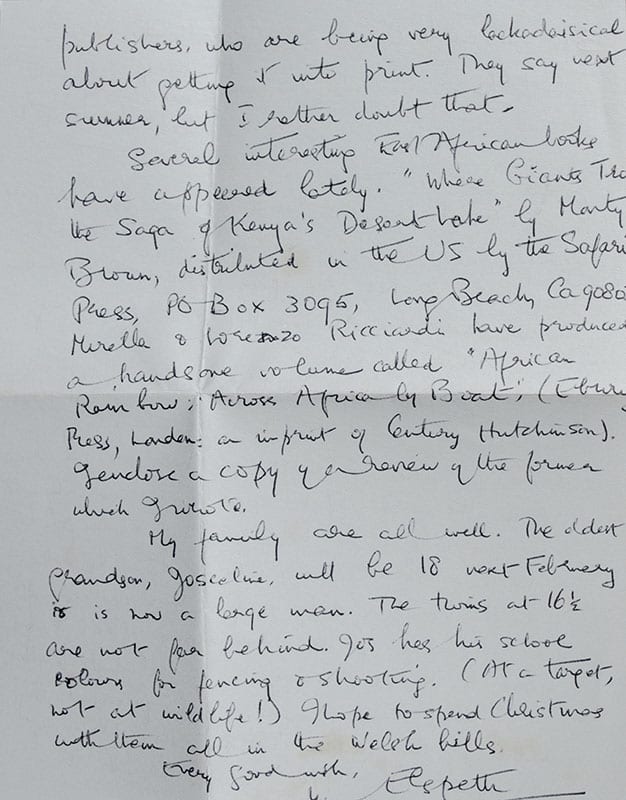 publishers, who are being very lackadaisical
about getting it into print. They say next
summer, but I rather doubt that.
Several interesting East African books
have appeered lately. "Where Giants Tro
the Saga of Kenya's Desert Lake" by Monty
Brown, distributed in the US by the Safari
Press, PO Box 3095, Long Beach, Ca 9080
Mirella & Lorenzo Ricciardi have produced
a handsome volume called "African
Rainbow: Across Africa by Boat", (Ebury
Press, London: an imprint of Century Hutchinson).
I enclose a copy of a review of the former
which I wrote.
My family are all well. The eldest
grandson, Josceline, will be 18 next February
is is now a large man. The twins at 16½
are not far behind. Jos has his school
colours for fencing & shooting. (At a target,
not at wildlife!) I hope to spend Christmas
with them all in the Welsh hills.
Every good wish,
Elspeth